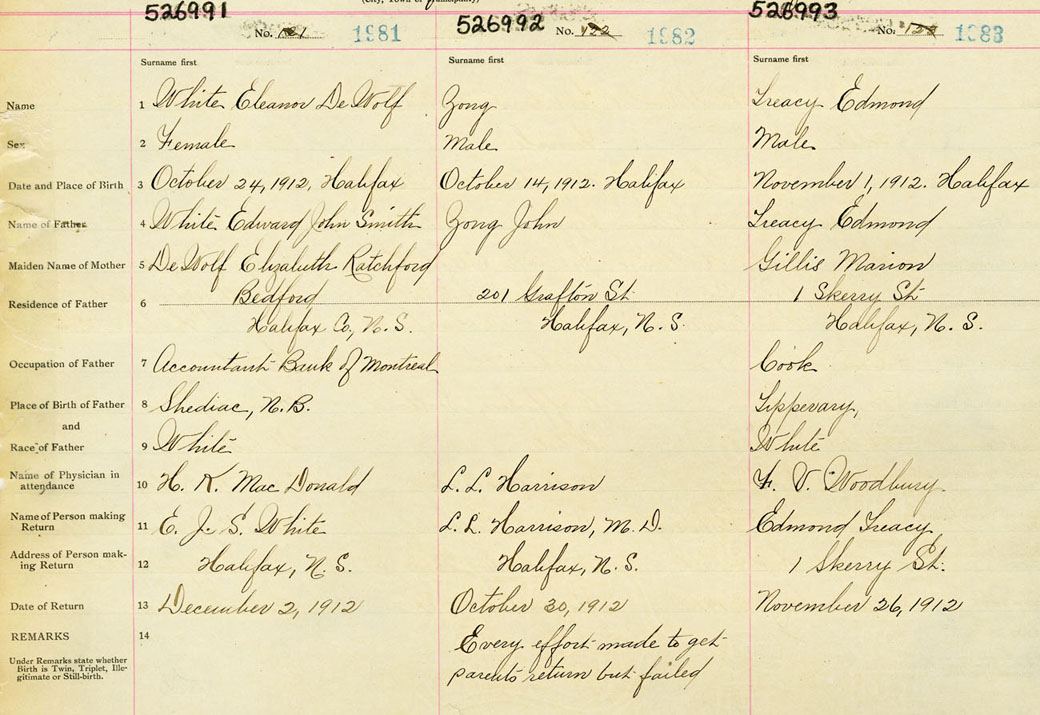 526991 526992 526993
No. 1981 No. 1982 No. 1983
Surname first Surname first Surname first
Name 1 White Eleanor De Wolf Zong Treacy Edmond
Sex 2 Female Male Male
Date and Place of Birth 3 October 24, 1912, Halifax October 14, 1912. Halifax November 1, 1912. Halifax
Name of Father 4 White Edward John Smith Zong John Treacy Edmond
Maiden Name of Mother 5 De Wolf Elizabeth Ratchford Gillis Marion
Residence of Father 6 Bedford 201 Grafton St. 1 Skerry St.
Halifax Co, N.S. Halifax, N.S. Halifax, N.S.
Occupation of Father 7 Accountant Bank of Montreal Cook
Place of Birth of Father 8 Shediac, N.B. Tipperary,
and
Race of Father 9 White White
Name of Physician in attendance 10 H. K. Mac Donald L. L. Harrison F. V. Woodbury
Name of Person making Return 11 E. J. S. White L. L. Harrison, M.D. Edmond Treacy
Address of Person mak-
ing Return 12 Halifax, N.S. Halifax, N.S. 1 Skerry St.
Date of Return 13 December 2, 1912 October 30, 1912 November 26, 1912
REMARKS 14 Every effort made to get
parents return but failed
Under Remarks state whether
Birth is Twin, Triplet, Ille-
gitimate or Still-birth.